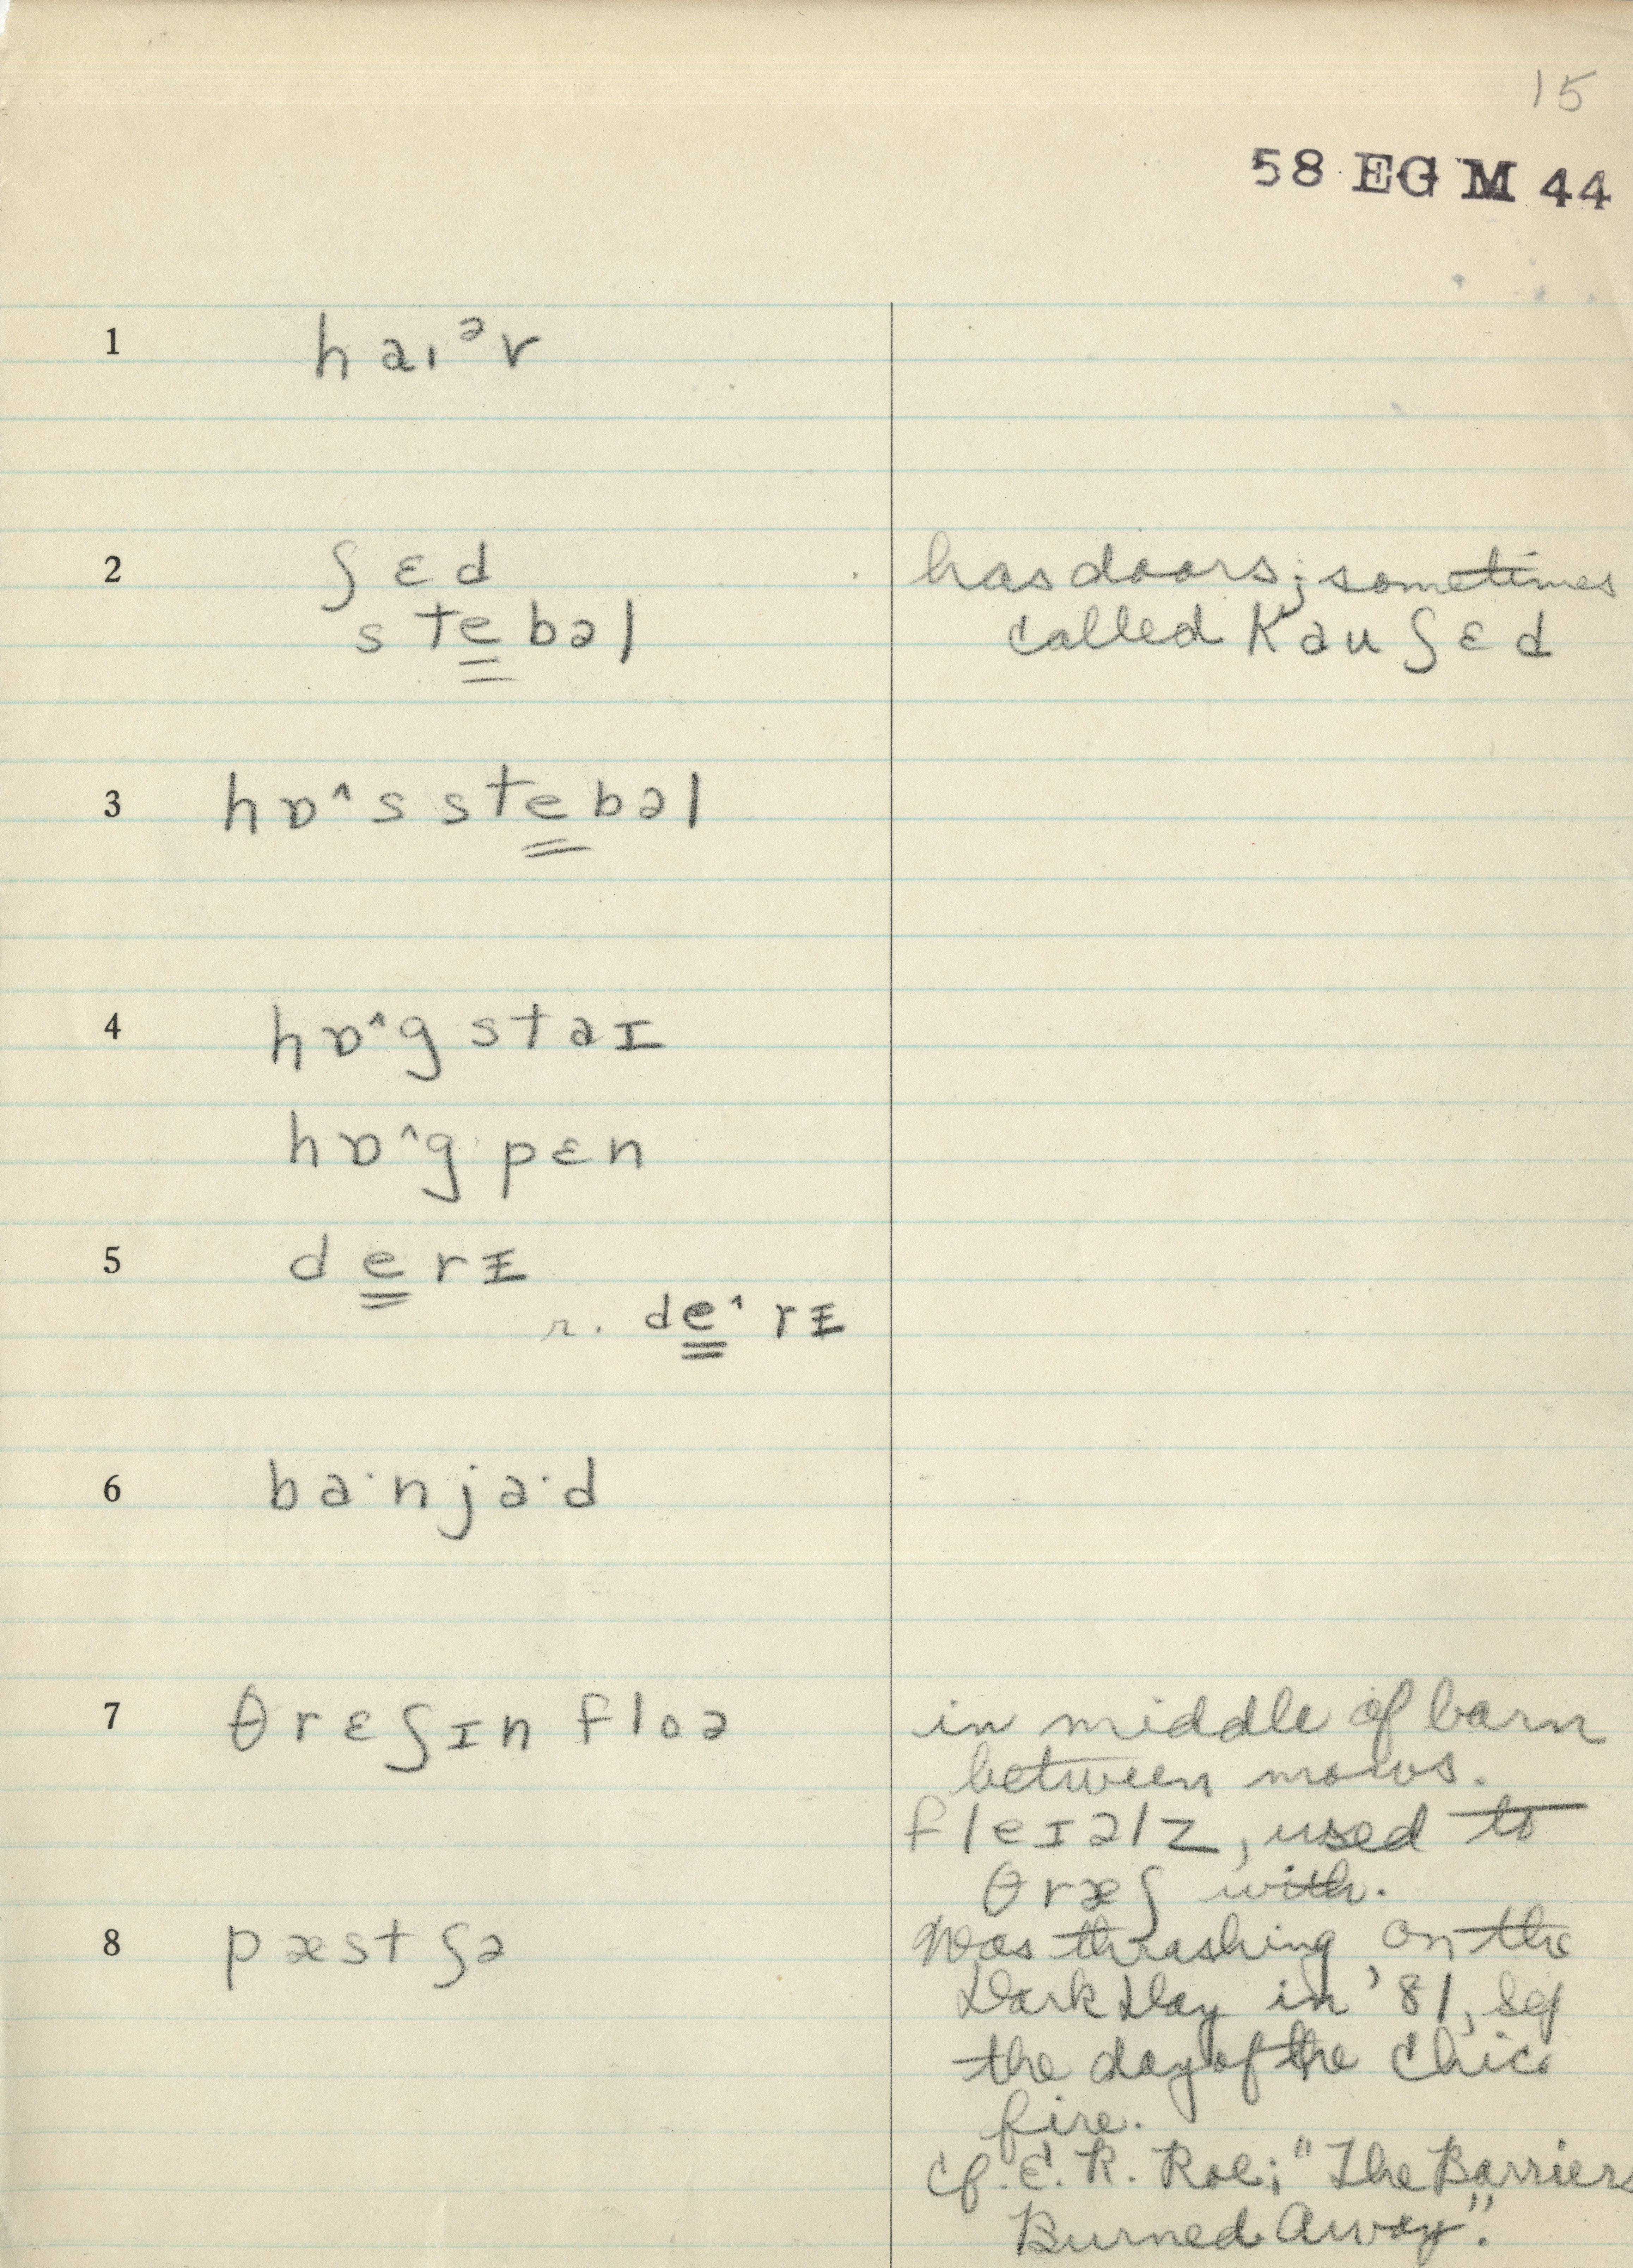 15
58 EG M 44
1 haɪᵊr
2 ʃɛd has doors; sometimes
stebəl called kauʃɛd
3 hɒ^s stebəl
4 hɒ^g staɪ
hɒ^g pɛn
5 derɨ
r. de^rɨ
6 ba·nja·d
7 θrɛʃɪn floə in middle of barn
between mows.
fleɪəlz, used to
θræʃ with.
8 pæstʃə Was thrashing on the
Dark Day in '81,
the day of the Chic.
fire.
cf. E. R. Roe; "The Barriers
Burned Away".